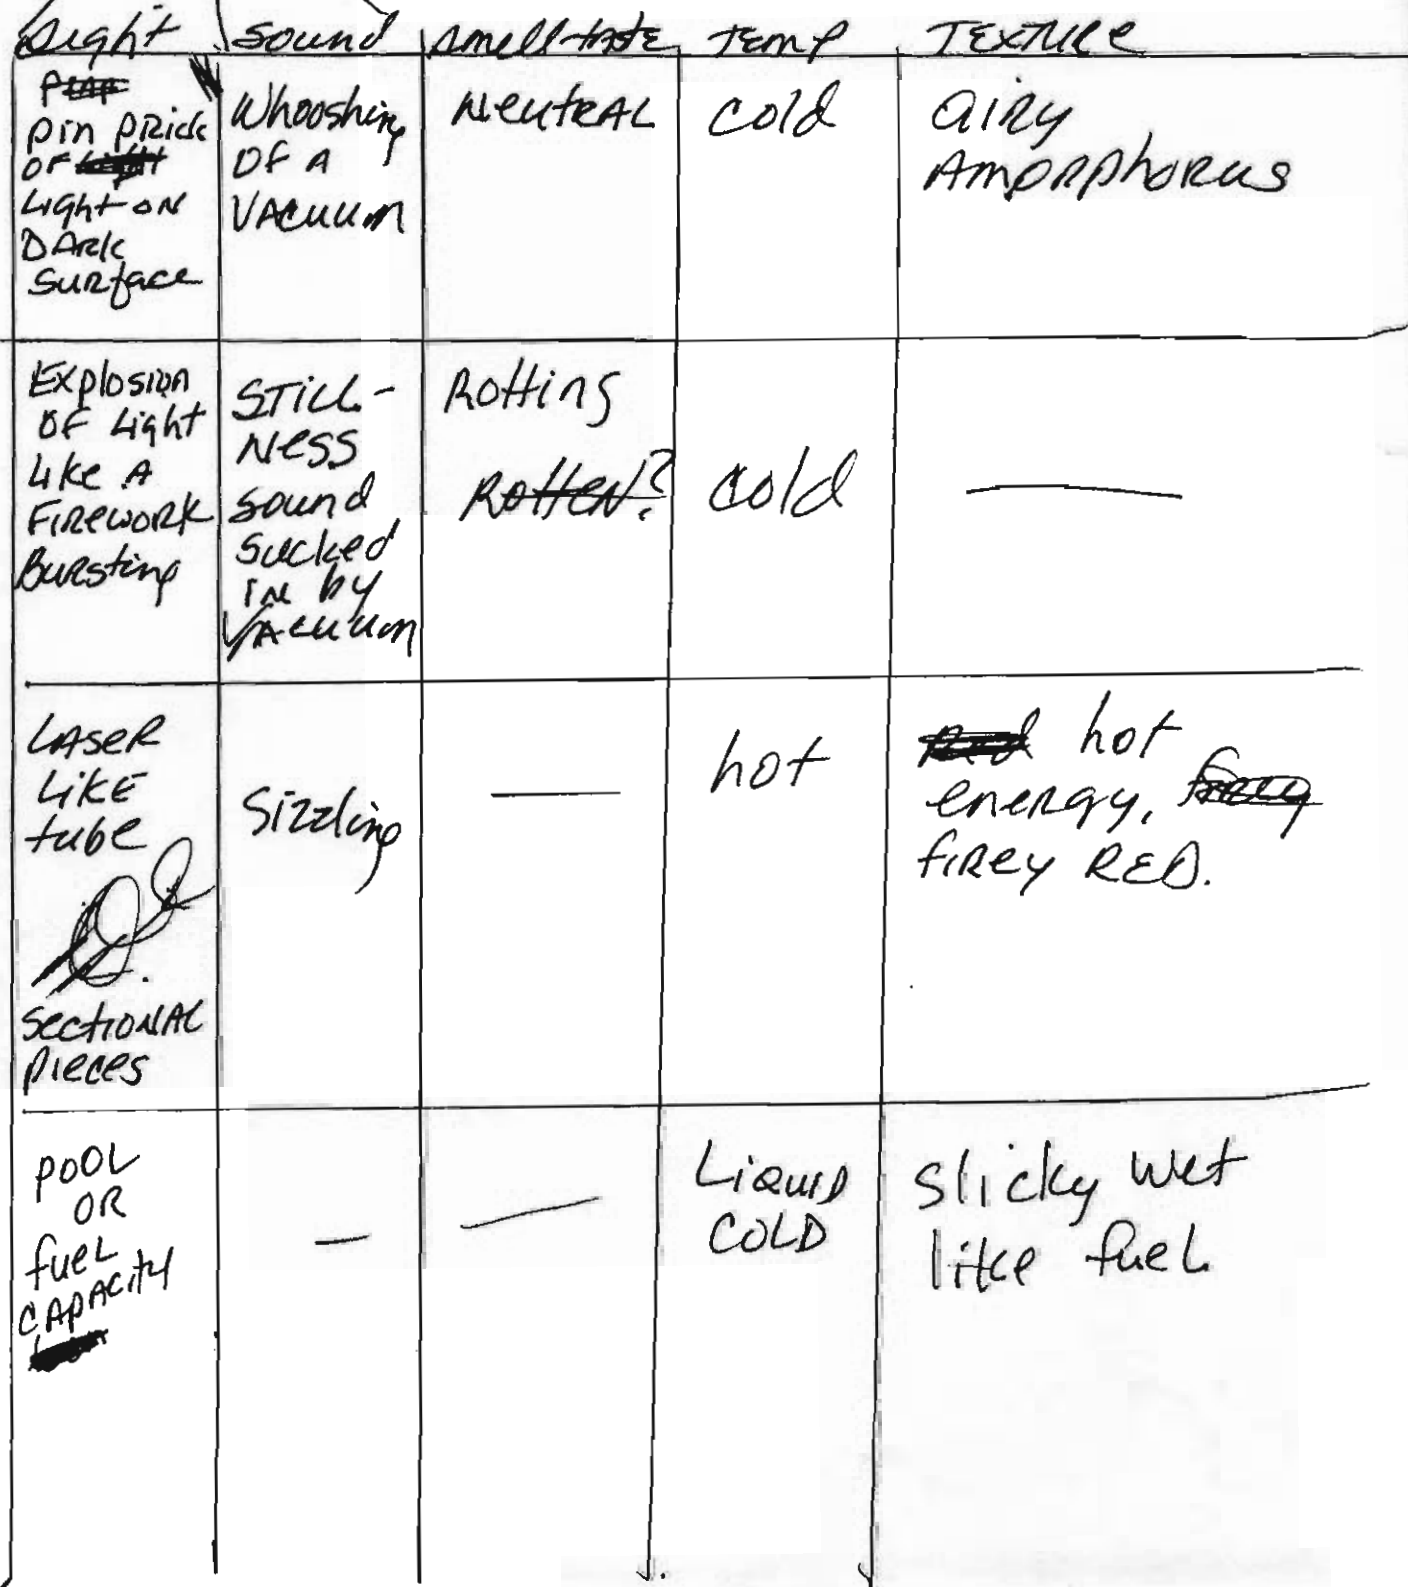 Sight Sound Smell-taste TEMP TEXTURE
pin prick
OF
Light ON
DARK
Surface
Whooshing
OF A
VACUUM
NeutRAL
cold
AIRY
AMORPhORUS
Explosion
OF Light
Like A
FIREWORK
Bursting
STILL-
Ness
Sound
Sucked
IN by
VACUUM
Rotting
Rotten?
cold
LASER
LIKE
tube
SectIONAL
pieces
Sizzling
hot
hot
energy,
firey RED.
POOL
OR
fuel
CAPACITY
Liquid
COLD
Slicky wet
like fuel